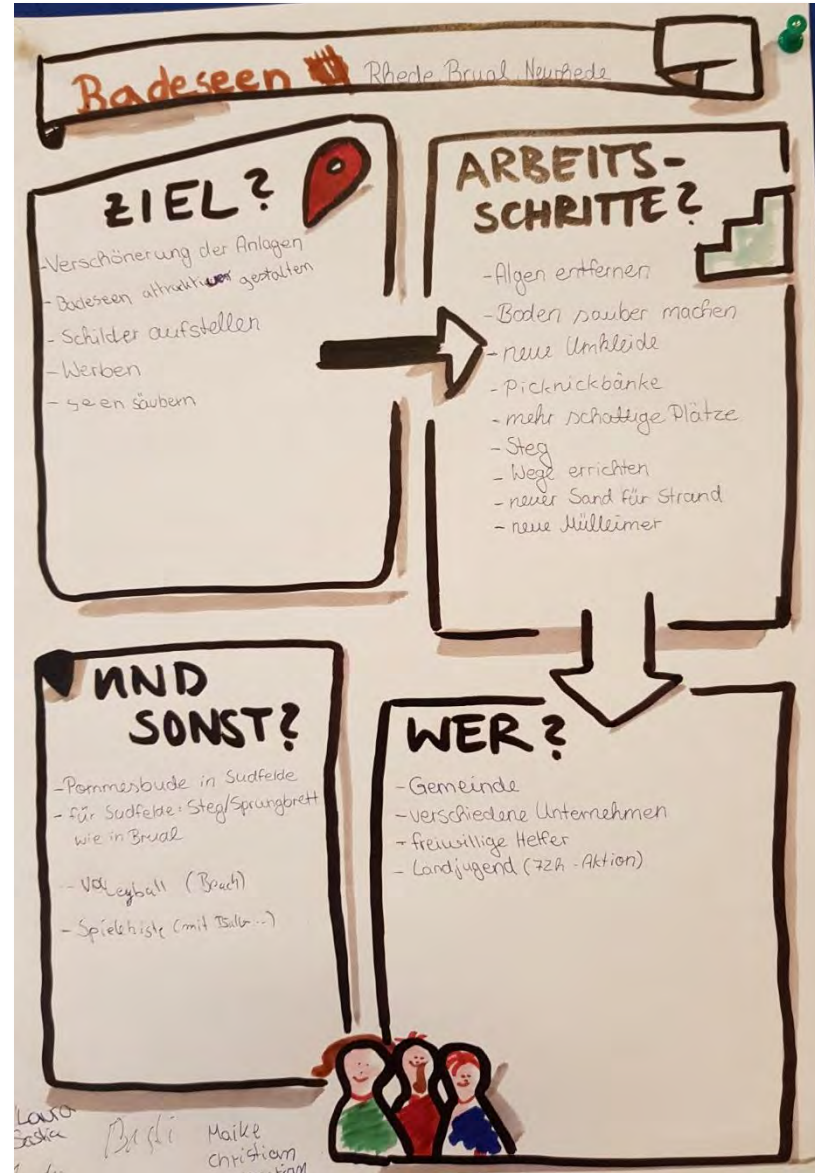 Badeseen Rhede, Brual, Neurhede
ZIEL?
-Verschönerung der Anlagen
- Badeseen attraktiver gestalten
- Schilder aufstellen
- Werben
- seen säubern
ARBEITS-
SCHRITTE?
-Algen entfernen
-Boden sauber machen
-neue Umkleide
-Picknickbänke
-mehr schattige Plätze
-Steg
-Wege errichten
-neuer Sand für Strand
-neue Mülleimer
UND
SONST?
-Pommesbude in Sudfelde
-für Sudfelde: Steg/Sprungbrett
wie in Brual
- Volleyball (Beach)
- Spielekiste (mit Bällen...)
WER?
-Gemeinde
-verschiedene Unternehmen
-freiwillige Helfer
- Landjugend (72h-Aktion)
Laura
Maike
Christian